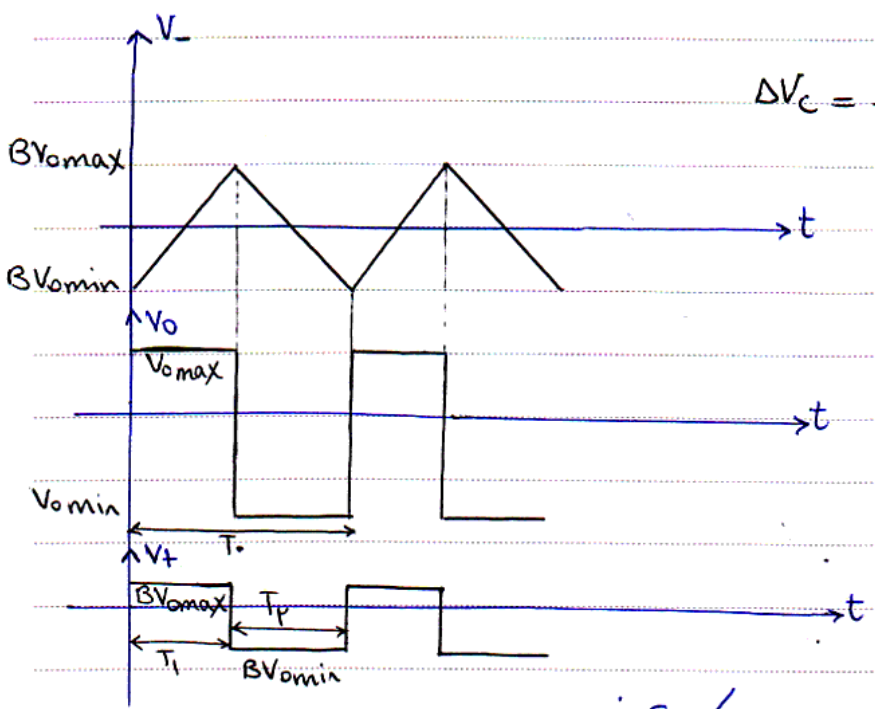 V-
ΔVc =
BVomax
t
BVomin
Vo
Vomax
t
Vomin
T.
V+
BVomax
Tp
t
T1
BVomin